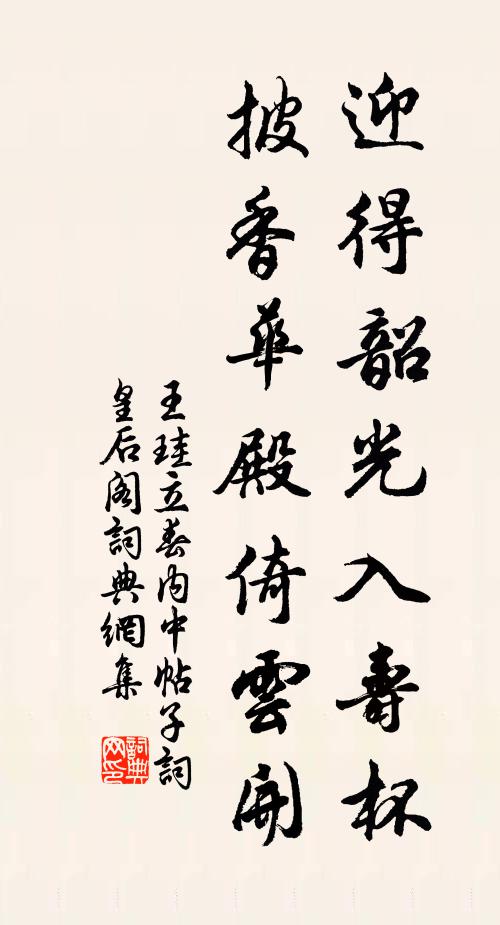 迎得韶光入壽杯
披香華殿倚雲開
王珪立春內中帖子詞
皇后閣詞典網集
詞典
网印